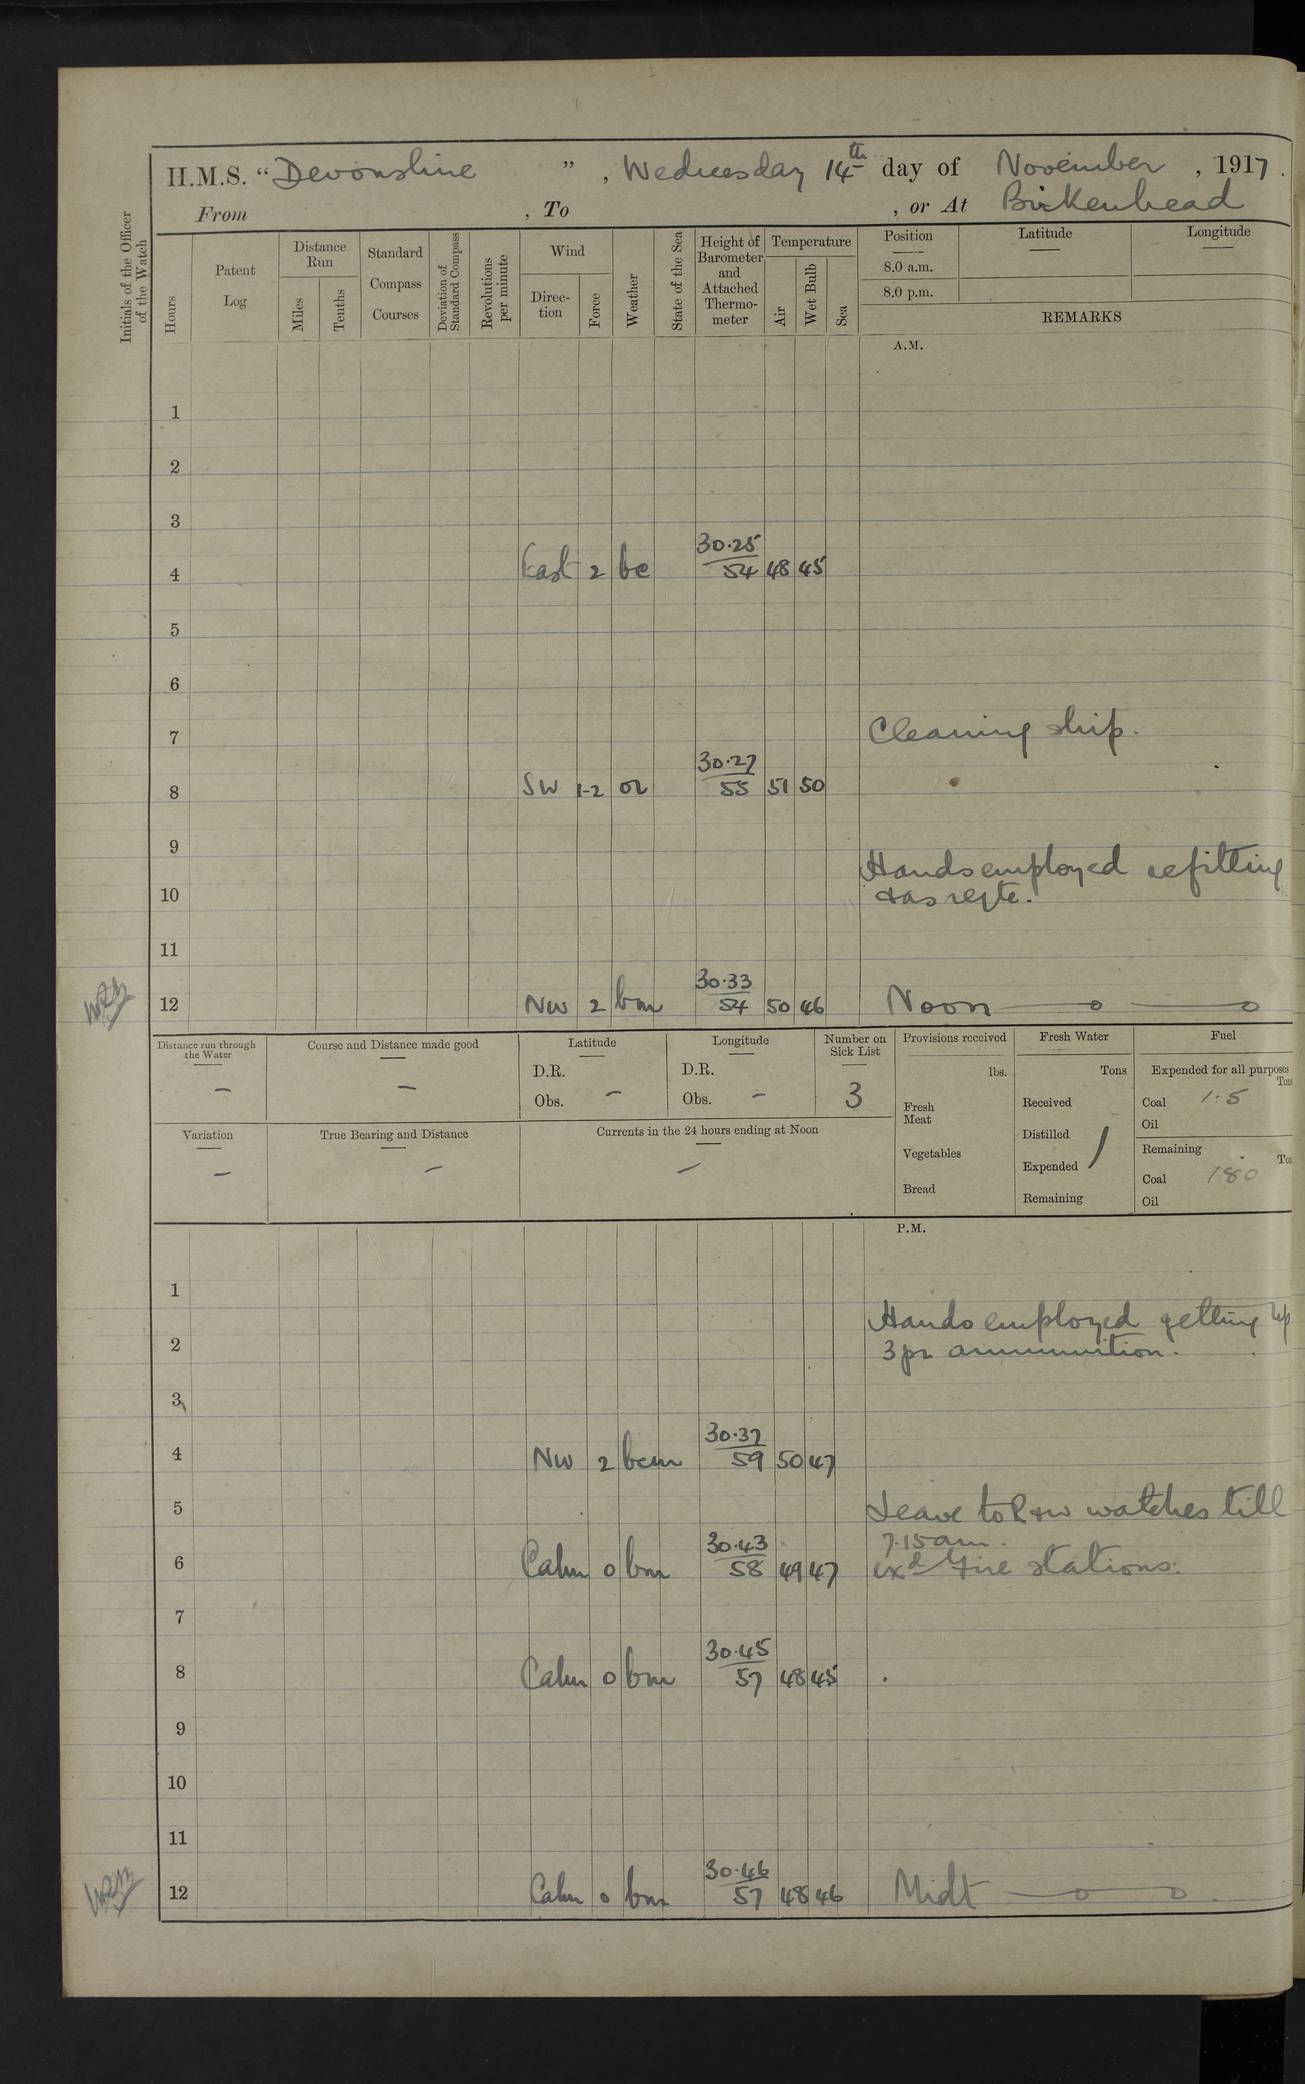 H.M.S. “Devonshire ” , Wednesday 14th day of November , 1917.
From , To , or At Birkenhead
Initials of the Officer of the Watch
Hours
Patent Log
Distance Run
Miles
Tenths
Standard Compass Courses
Deviation of Standard Compass
Revolutions per minute
Wind
Direction
Force
Weather
State of the Sea
Height of Barometer and Attached Thermometer
Temperature
Air
Wet Bulb
Sea
Position Latitude Longitude
8.0 a.m.
8.0 p.m.
REMARKS
A.M.
1
2
3
30.25
4 East 2 bc 54 48 45
5
6
7 Cleaning ship.
30.27
8 SW 1-2 or 55 51 50
9
Hands employed refitting
10 & as reqte.
11
30.33
12 NW 2 bm 54 50 46 Noon
Distance run through the Water
–
Course and Distance made good
–
Latitude
D.R.
Obs. –
Longitude
D.R.
Obs. –
Number on Sick List
3
Variation
–
True Bearing and Distance
–
Currents in the 24 hours ending at Noon
–
Provisions received
lbs.
Fresh Meat
Vegetables
Bread
Fresh Water
Tons
Received
Distilled
Expended
Remaining
Fuel
Expended for all purposes
Tons
Coal 1.5
Oil
Remaining
Coal 180
Oil
P.M.
1
Hands employed getting up
2 3pr ammunition.
3
30.37
4 NW 2 bcm 59 50 47
5 Leave to R & W watches till
30.43 7.15 am.
6 Calm 0 bm 58 49 47 Exd Fire stations.
7
30.45
8 Calm 0 bm 57 48 45
9
10
11
30.46
12 Calm 0 bm 57 48 46 Midt